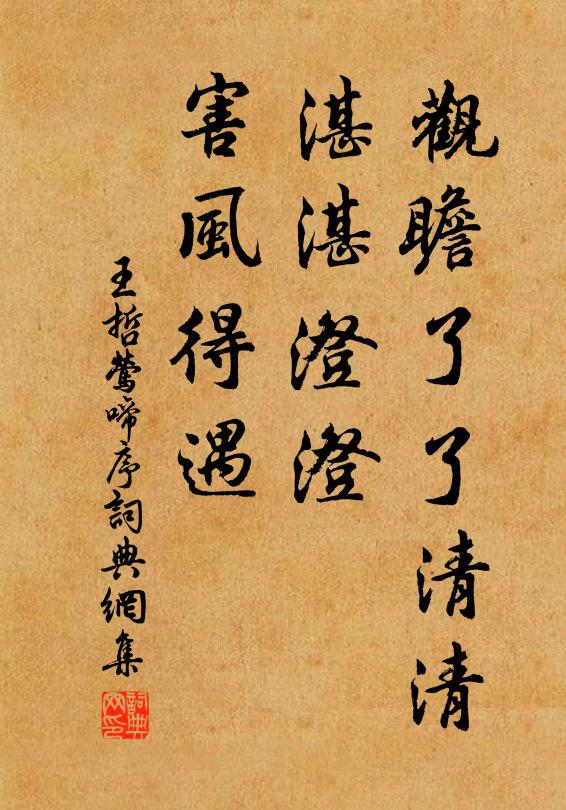 觀瞻了了清清
湛湛澄澄
害風得遇
王哲鶯啼序詞典網集
詞典
网印